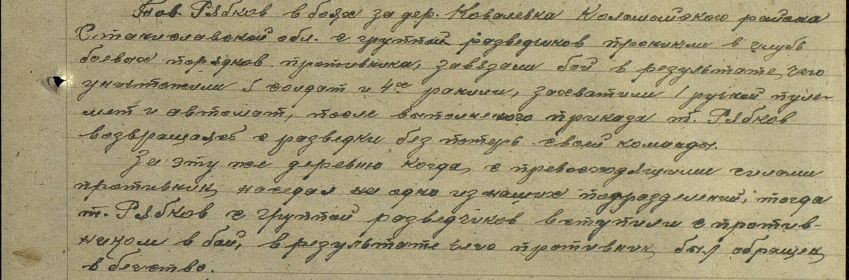 Тов. Рябков в боях за дер. Ковалевка Коломыйского района
Станиславской обл. с группой разведчиков проникли в глубь
боевых порядков противника, завязали бой в результате чего
уничтожили 5 солдат и 4ех ранили, захватили 1 ручной пуле-
мет и автомат, после выполненого приказа т. Рябков
возвращаясь с разведки без потерь своей команды.
За эту же деревню когда, с превосходящими силами
противник, наседал на одно из наших подразделений, тогда
т. Рябков с группой разведчиков вступили с против-
ником в бой, в результате чего противник был обращен
в бегство.